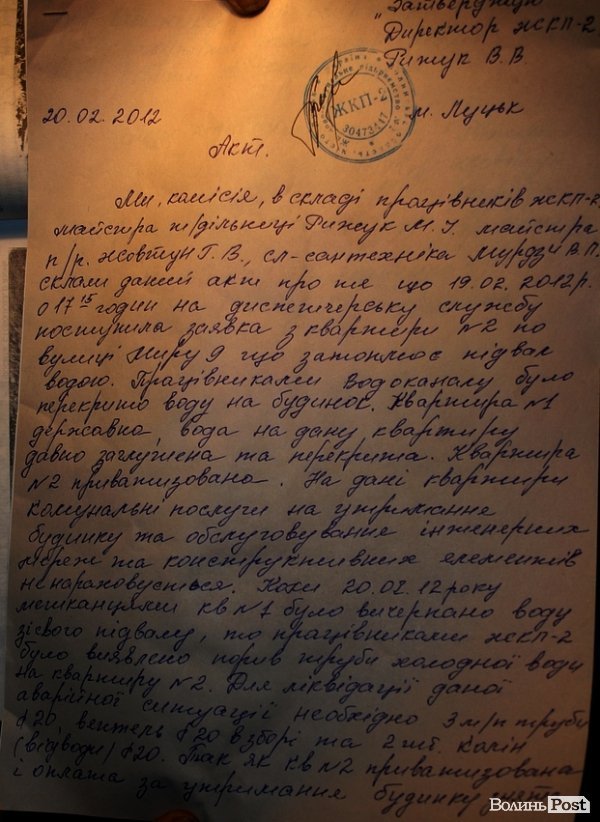 "Затверджую"
Директор ЖКП-2
Рижук В.В.
ЖКП-2
30473417
20.02.2012
м. Луцьк
Акт.
Ми, комісія, в складі працівників ЖКП-2
майстра т/дільниці Рижук М.І. майстра
п/р. Жовтун Г.В., сл-сантехніка Мурдзи В.П.
склали даний акт про те що 19.02.2012р.
о 17 15 годин на диспетчерську службу
поступила заявка з квартири №2 по
вулиці Миру 9 що затоплює підвал
водою. Працівниками водоканалу було
перекрито воду на будинок. Квартира №1
державна, вода на дану квартиру
давно заглушена та перекрита. Квартира
№2 приватизована. На дані квартири
комунальні послуги на утримання
будинку та обслуговування інженерних
мереж та конструктивних елементів
не нараховується. Коли 20.02.12 року
мешканцями кв №1 було вичерпано воду
зі свого підвалу, то працівниками ЖКП-2
було виявлено порив труби холодної води
на квартиру №2. Для ліквідації даної
аварійної ситуації необхідно 3 м/п труби
∮20, вентель ∮20 в зборі та 2 шт. колін
(відводи) ∮20. Так як кв №2 приватизована
і оплата за утримання будинку
ВолиньPost